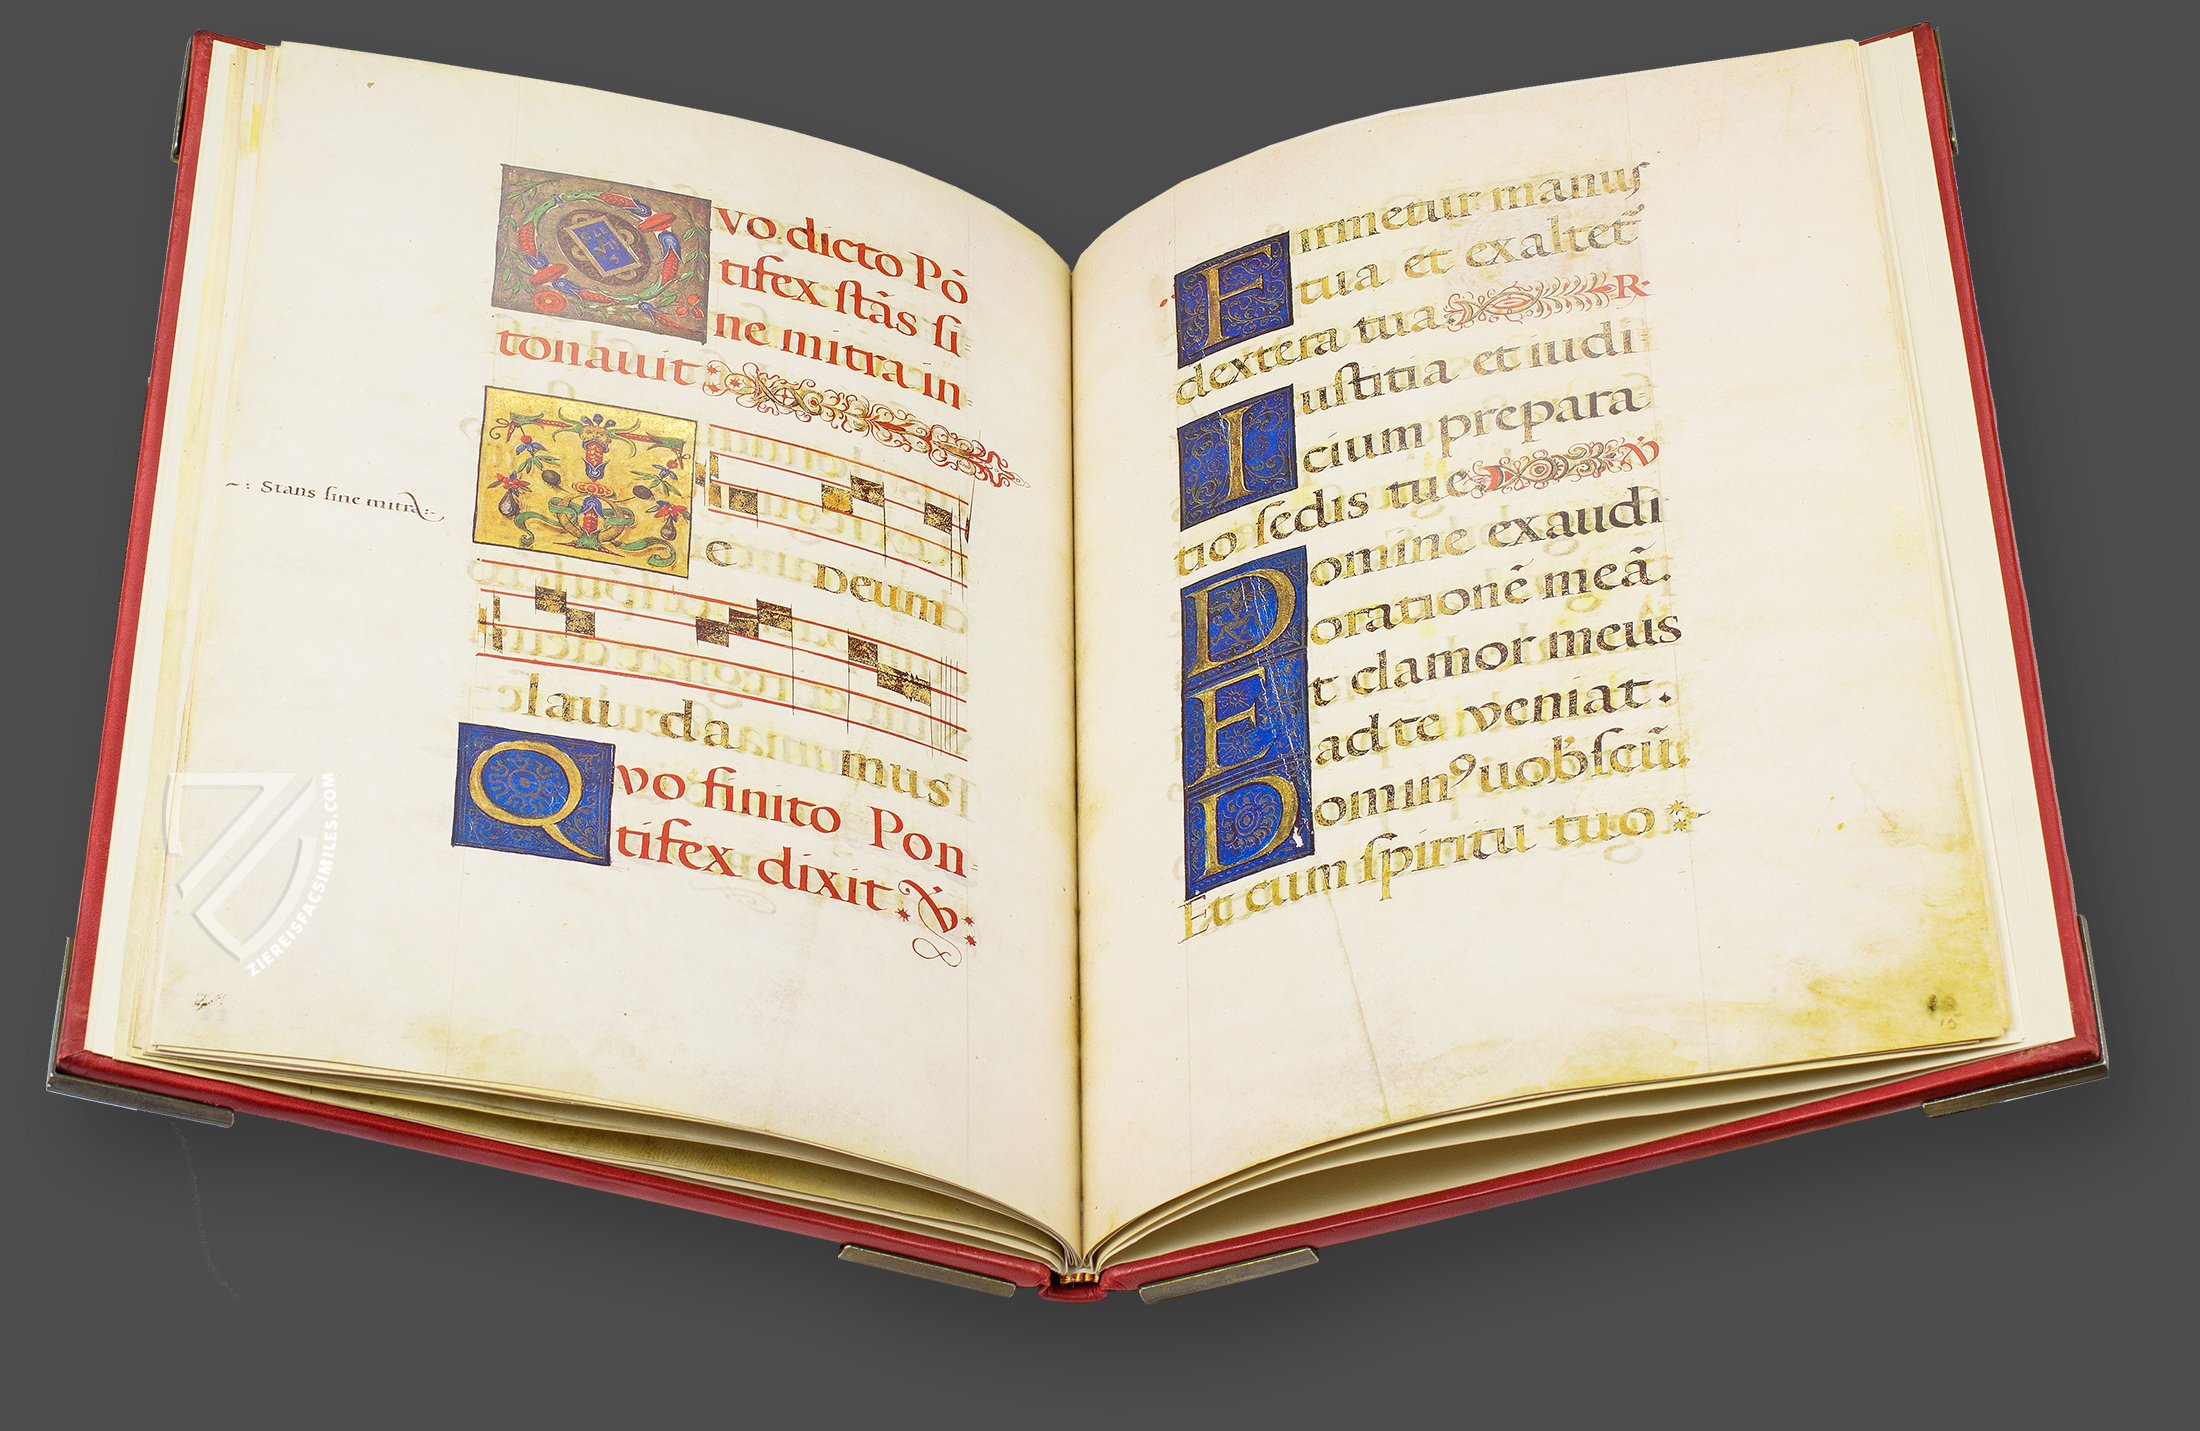 Qvo dicto Pò
tifex stãs si
ne mitra in
tonauit:
~: Stans sine mitra:~
Te Deum
lau da mus
Qvo finito Pon
tifex dixit. ℣:
Firmetur manus
tua et exaltet̃
dextera tua. R.
Iustitia et iudi
cium prepara
tio sedis tue. ℣
Domine exaudi
orationẽ meã.
Et clamor meus
ad te veniat.
Dominꝰ uob̓scũ.
Et cum spiritu tuo:
15
ZIEREISFACSIMILES.COM